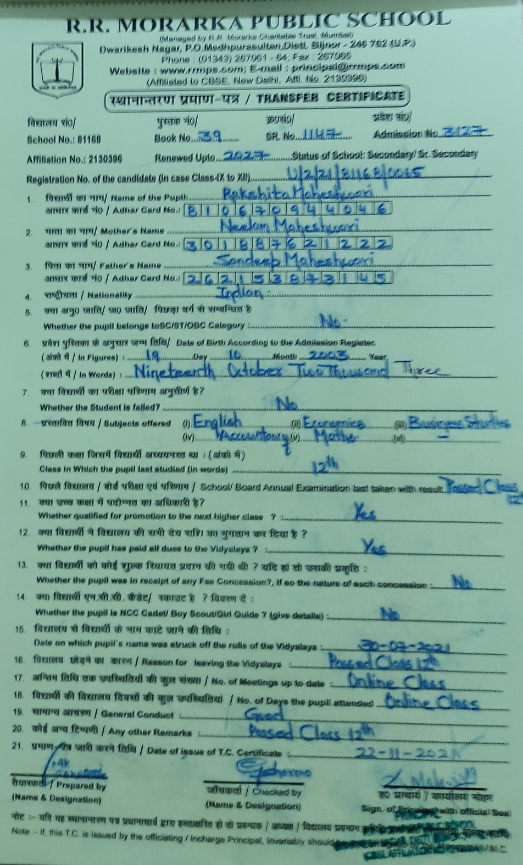 R.R. MORARKA PUBLIC SCHOOL
(Managed by R.R. Morarka Charitable Trust, Mumbai)
Dwarikesh Nagar, P.O.Medhpurasultan,Distt. Bijnor - 246 762 (U.P.)
Phone : (01343) 267061 - 64, Fax : 267065
Website : www.rrmps.com; E-mail : principal@rrmps.com
(Affiliated to CBSE, New Delhi, Affi. No. 2130396)
स्थानान्तरण प्रमाण-पत्र / TRANSFER CERTIFICATE
विद्यालय सं०/ पुस्तक नं०/ क्र०सं०/ प्रवेश सं०/
School No.: 81168 Book No. 39 SR. No. 1147 Admission No. 3127
Affiliation No.: 2130396 Renewed Upto 2027 Status of School: Secondary/ Sr. Secondary
Registration No. of the candidate (in case Class-IX to XII)
1. विद्यार्थी का नाम/ Name of the Pupil Rakshita Maheshwari
आधार कार्ड नं०/ Adhar Card No.: 810670944046
2. माता का नाम/ Mother's Name Neelam Maheshwari
आधार कार्ड नं०/ Adhar Card No.: 301887621222
3. पिता का नाम/ Father's Name Sandeep Maheshwari
आधार कार्ड नं०/ Adhar Card No.: 262153873145
4. राष्ट्रीयता / Nationality Indian
5. क्या अनु० जाति/ जन० जाति/ पिछड़ा वर्ग से सम्बन्धित है
Whether the pupil belongs toSC/ST/OBC Category : No
6. प्रवेश पुस्तिका के अनुसार जन्म तिथि/ Date of Birth According to the Admission Register.
(अंको में / In Figures) : 19 Day 10 Month 2003 Year
(शब्दों में / In Words) : Nineteenth October Two Thousand Three
7. क्या विद्यार्थी का परीक्षा परिणाम अनुत्तीर्ण है?
Whether the Student is failed? No
8. प्रस्तावित विषय / Subjects offered (i) English (ii) Economics (iii) Business Studies
(iv) Accountancy (v) Maths (vi)
9. पिछली कक्षा जिसमें विद्यार्थी अध्ययनरत था : (अंको में)
Class in Which the pupil last studied (in words) 12th
10. पिछले विद्यालय / बोर्ड परीक्षा एवं परिणाम / School/ Board Annual Examination last taken with result Passed Class 12
11. क्या उच्च कक्षा में पदोन्नत का अधिकारी है?
Whether qualified for promotion to the next higher class ? : Yes
12. क्या विद्यार्थी ने विद्यालय की सभी देय राशि का भुगतान कर दिया है?
Whether the pupil has paid all dues to the Vidyalaya ? : Yes
13. क्या विद्यार्थी को कोई शुल्क रियायत प्रदान की गयी थी ? यदि हां तो उसकी प्रकृति :
Whether the pupil was in receipt of any Fee Concession?, if so the nature of such concession : No
14. क्या विद्यार्थी एन.सी.सी. कैडेट/ स्काउट है ? विवरण दें :
Whether the pupil is NCC Cadet/ Boy Scout/Girl Guide ? (give details) : No
15. विद्यालय से विद्यार्थी के नाम काटे जाने की तिथि :
Date on which pupil's name was struck off the rolls of the Vidyalaya 30-07-2021
16. विद्यालय छोड़ने का कारण / Reason for leaving the Vidyalaya Passed Class 12th
17. अन्तिम तिथि तक उपस्थितियों की कुल संख्या / No. of Meetings up to date : Online Class
18. विद्यार्थी की विद्यालय दिवसों की कुल उपस्थितियां / No. of Days the pupil attended Online Class
19. सामान्य आचरण / General Conduct : Good
20. कोई अन्य टिप्पणी / Any other Remarks : Passed Class 12th
21. प्रमाण-पत्र जारी करने तिथि / Date of issue of T.C. Certificate 22-11-2021
तैयारकर्ता / Prepared by जाँचकर्ता / Checked by ह० प्राचार्य / कार्यालय मोहर
(Name & Designation) (Name & Designation) Sign. of Principal with official Seal
नोट :- यदि यह स्थानान्तरण पत्र प्रधानाचार्य द्वारा हस्ताक्षरित हो तो प्रबन्धक / अध्यक्ष / विद्यालय प्रबन्धन
Note :- If, this T.C. is issued by the officiating / Incharge Principal, invariably should